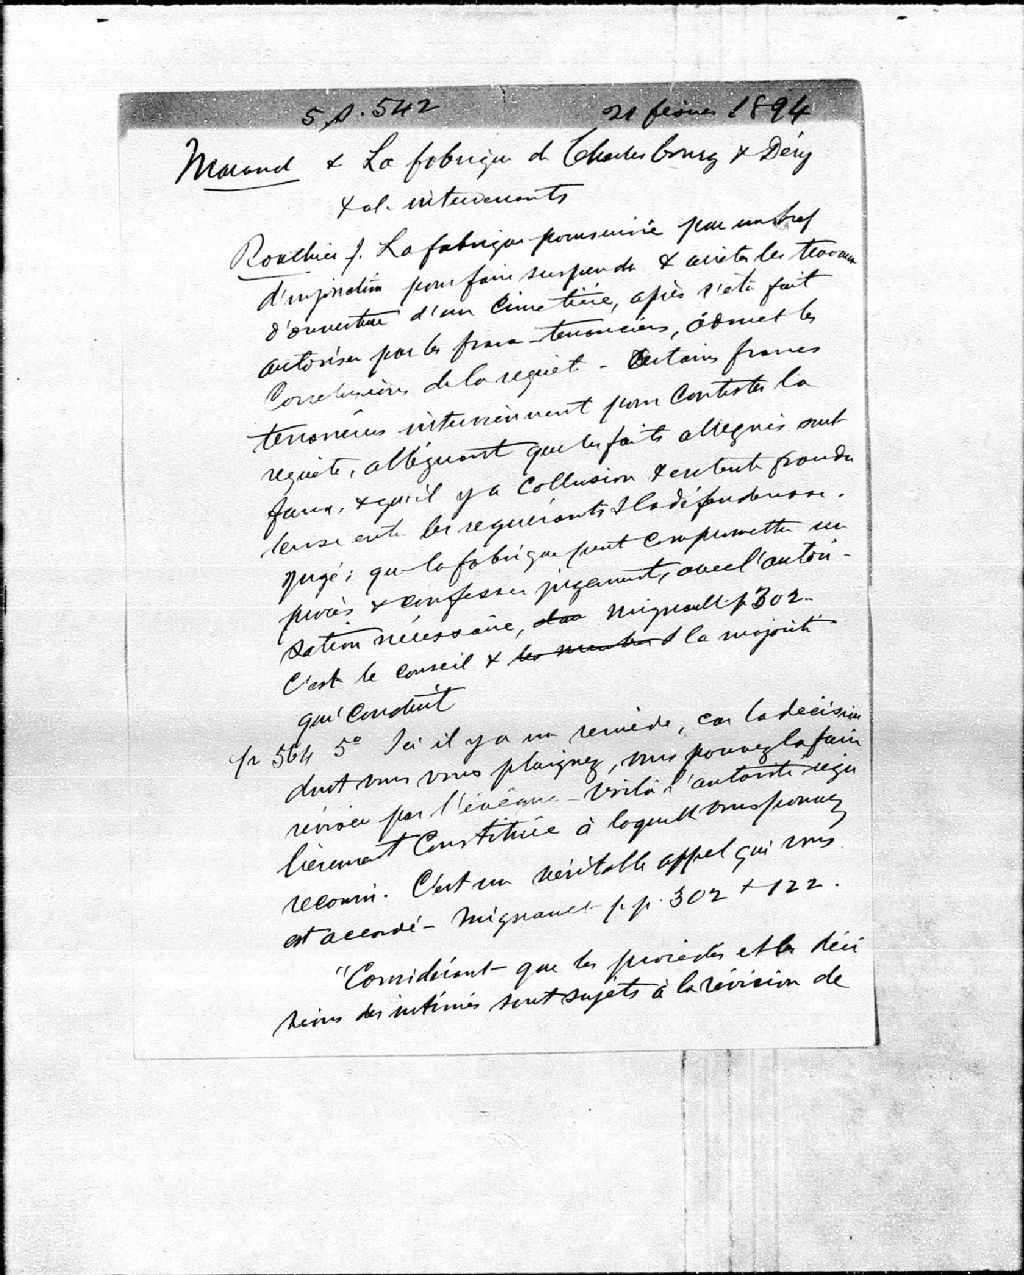 5 S. 542 21 février 1894
Morand & La fabrique de Charlesbourg & Déry
& al. intervenants
Routhier J. La fabrique poursuivie par un bref
d'injonction pour faire suspendre & arrêter les travaux
d'ouverture d'un cimetière, après s'être fait
autoriser par les francs-tenanciers, admet les
conclusions de la requête - Certains francs
tenanciers interviennent pour contester la
requête, alléguant que les faits allégués sont
faux, & qu'il y a collusion & entente fraudu
leuse entre les requérants & la défenderesse.
Jugé: que la fabrique peut compromettre un
procès & confesser jugement, avec l'autori-
sation nécessaire, Mignault p 302
C'est le conseil & les membres & la majorité
qui conduit
p 564 5° Ici il y a un remède, car la décision
dont vous vous plaignez, vous pouvez la faire
réviser par l'évêque - Voilà l'autorité régu
lièrement constituée à laquelle vous pouvez
recourir. C'est un véritable appel qui vous
est accordé - Mignault p.p. 302 + 122.
"Considérant que les procédés et les déci
sions des intimés sont sujets à la révision de